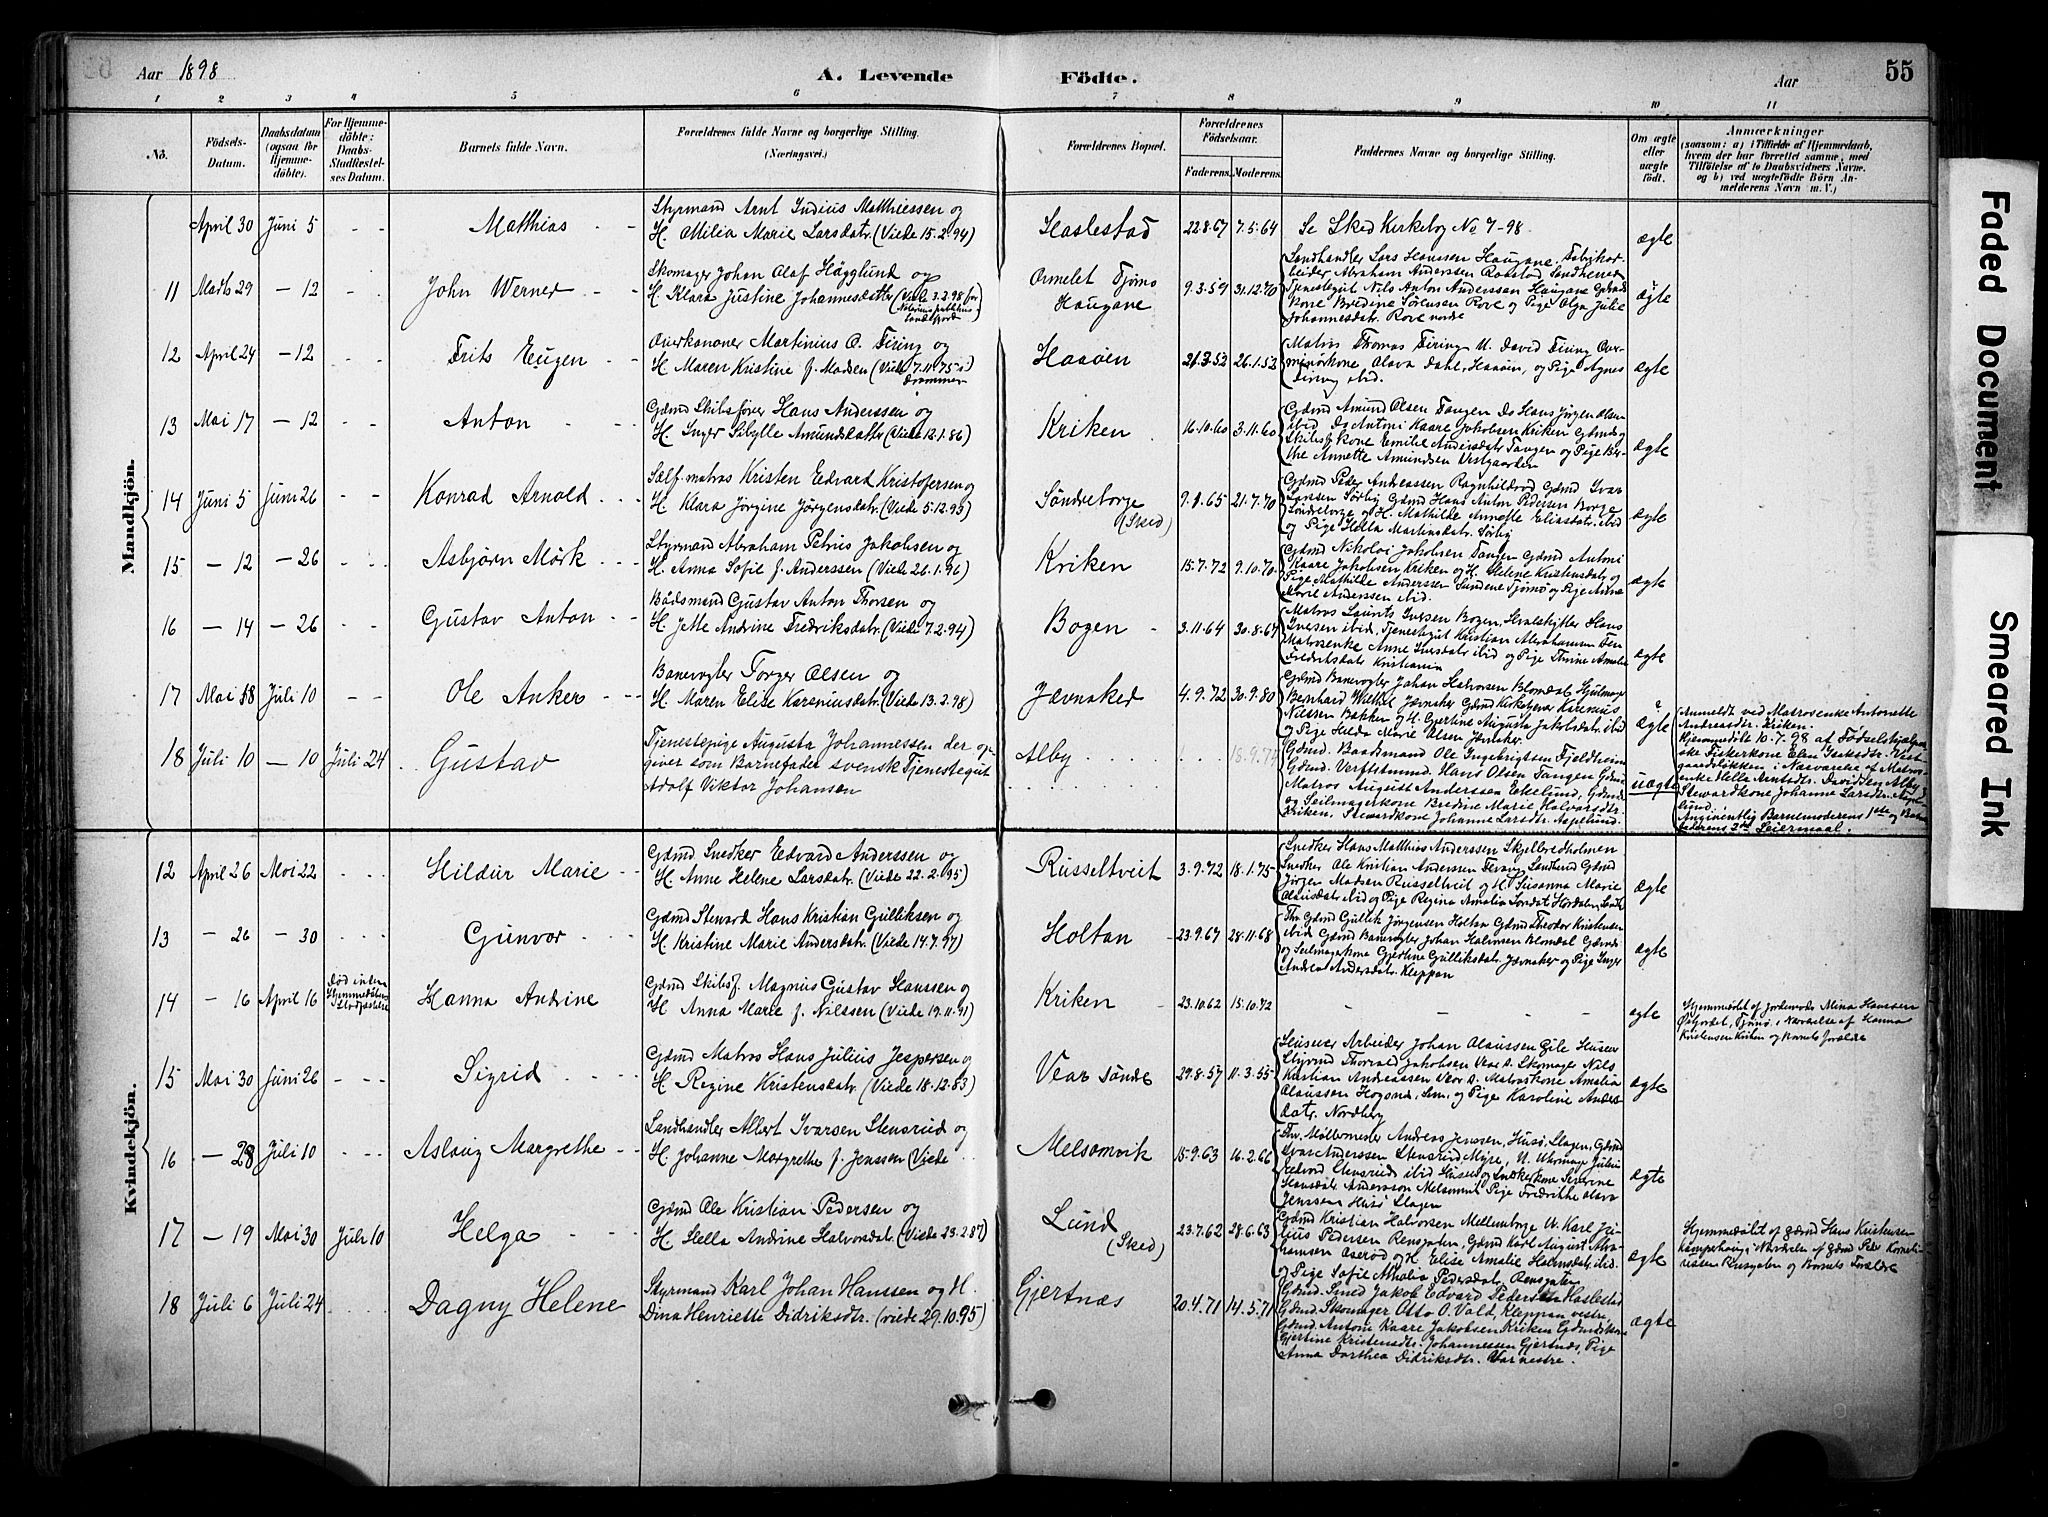 Aar 1898
A. Levende Födte.
Aar
55
1 2 3 4 5 6 7 8 9 10 11
No.
Födsels-Datum.
Daabsdatum (ogsaa for Hjemmedöbte).
For Hjemmedöbte: Daabs-Stadfæstelses Datum.
Barnets fulde Navn.
Forældrenes fulde Navne og borgerlige Stilling.
(Næringsvei.)
Forældrenes Bopæl.
Forældrenes Födselsaar.
Faderens. Moderens.
Faddernes Navne og borgerlige Stilling.
Om ægte eller uægte födt.
Anmærkninger
(saasom: a) i Tilfælde af Hjemmedaab,
hvem der har forrettet samme, med
Tilföielse af to Daabsvidners Navne,
og b) ved uægtefödte Börn An-
melderens Navn m. V.)
Mandkjön.
April 30 Juni 5 - - Matthias - - Styrmand Arnt Indius Matthiessen og
H. Milia Marie Larsdatr. (Viede 15.2.94) Haslestad 22.8.67 7.5.64 Se Sked Kirkebog No 7-98 ægte
11 Marts 29 - 12 - - John Werner - - Skomager Johan Olaf Hägglund og
H. Klara Justine Johannesdatter (Viede 3.2.98 for Ormelet Tjømø
Haugane 9.3.59 31.12.70 Landhandler Lars Hanssen Haugane, Fabrikar-
beider Abraham Anderssen
Tjenestegut Nils Anton Anderssen Haugane Gdmds
kone Bredine Sørensen Rove og Pige Olga Julie
Johannesdatr. Rove nordre ægte
12 April 24 - 12 - - Frits Eugen - Overkanoner Martinius O. Firing og
H. Maren Kristine f. Madsen (Viede 7.11.75 i
Drammen Haaøen 21.3.52 26.1.53 Matros Thomas Firing U. David Firing Over-
minørkone Olava Dahl, Haaøen, og Pige Agnes
Firing ibid. ægte
13 Mai 17 - 12 - - Anton - - Gdmd Skibsfører Hans Anderssen og
H. Inger Sibylle Amundsdatter (Viede 12.1.86) Kriken 16.10.60 3.11.60 Gdmd Amund Olsen Tangen Do Hans Jørgen Olsen
ibid Do Antoni Kaare Jakobsen Kriken Gdmds og
Skibsf.kone Emilie Andersdatr Tangen og Pige Ber-
the Annette Amundsen Vestgaarden ægte
14 Juni 5 Juni 26 - - Konrad Arnold - - - Sølf. matros Kristen Edvard Kristofersen og
H. Klara Jørgine Jørgensdatr. (Viede 5.12.95) Søndreborge
(Sked) 9.1.65 21.7.70 Gdmd Peder Andreassen Ragnhildrød Gdmd Ivar
Larssen Sørby Gdmd Hans Anton Pedersen Borge
Søndreborge og H. Mathilde Annette Eliasdatr. ibid
og Pige Hella Martinsdatr. Sørby ægte
15 - 12 - 26 - - Asbjørn Mørk - - Styrmand Abraham Petrus Jakobsen og
H. Anna Sofie f. Anderssen (Viede 26.1.96) Kriken 15.7.72 9.10.70 Gdmd Nikolai Jakobsen Tangen Gdmd Antoni
Kaare Jakobsen Kriken og H. Helene Kristensdatr og
Pige Mathilde Anderssen Sundene Tjømø og Pige Anna
Marie Anderssen ibid. ægte
16 - 14 - 26 - - Gustav Anton - - Bådsmand Gustav Anton Thorsen og
H. Jette Andrine Fredriksdatr. (Viede 7.2.94) Bogen - 3.11.64 30.8.67 Matros Laurits Iversen Bogen, Hvalskytter Hans
Iversen ibid, Tjenestegut Kristian Abrahamsen Fen
Matrosenke Anne Iversdatr ibid og Pige Thrine Amalie
Fredriksdatr Kristiania ægte
17 Mai 18 Juli 10 - - Ole Anker - - Banevogter Torger Olsen og
H. Maren Elise Kareniusdatr. (Viede 13.2.98) Jævnaker 4.9.72 30.9.80 Gdmd Banevogter Johan Halvorsen Blomdal Hjulmager
Bernhard Wilhel. Jævnaker Gdmd Kirketjener Karenius
Nilssen Bakken og H. Gjertine Augusta Jakobsdatr. ibid
og Pige Hilda Marie Olsen Jævnaker. ægte
18 Juli 10 - 10 Juli 24 Gustav Tjenestepige Augusta Johannessen der op-
giver som Barnefader svensk Tjenestegut
Adolf Viktor Johansen Alby - - - - Gdmd. Baadsmand Ole Ingebrigtsen Fjeldheim
Gdmd. Verftstmmd. Hans Olsen Tangen Gdmd
Matros August Anderssen Ekelund, Gdmds
og Seilmagerkone Bredine Marie Halvorsdtr.
Kriken, Stewardkone Johanne Larsdtr. Aspelund. uægte Anmeldt ved Matrosenke Antonette
Andreasdtr. Kriken.
Hjemmedöbt 10.7.98 af Födselshjælper-
ske Fiskerkone Elen Isaksdtr. Vest-
gaardsløkken i Nærværelse af Matros-
enke Helle Arntsdtr. Davidsen Alby &
Stewardkone Johanne Larsdtr. Aspe-
lund.
Angiventlig Barnemoderens 1ste og Barne-
faderens 2det Leiermaal.
Kvindekjön.
12 April 26 Mai 22 - - - Hildur Marie - - Gdmd Snedker Edvard Anderssen og
H. Anne Helene Larsdatr. (Viede 22.2.95) Russeltveit 3.9.72 18.1.75 Snedker Hans Matthias Anderssen Skjellbredholmen
Snedker Ole Kristian Andersen Firing Sandsund Gdmd
Jörgen Madsen Russeltveit og H. Susanna Marie
Olausdatr ibid og Pige Regina Amalia ægte
13 - 26 - 30 - - - Gunvor - - - Gdmd Steward Hans Kristian Gulliksen og
H. Kristine Marie Andersdatr. (Viede 14.7.97) Holtan - 23.9.67 28.11.68 Thr. Gdmd Gullik Jørgensen Holtan Gdmd Theodor Kristensen
ibid Gdmd Banevogter Johan Halvorsen Blomdal Gdmds
og Seilmagerkone Gjertine Gulliksdatr. Jævnaker og Pige Inger
Andrea Andersdatr. Kleppan ægte
14 - 16 April 16 Død inden
Hjemmedåbens
Stadfæstelse Hanna Andrine Gdmd Skibsf. Magnus Gustav Hanssen og
H. Anna Marie f. Nilssen (Viede 19.11.91) Kriken - 23.10.62 15.10.72 - - - - ægte Hjemmedøbt af Jordemoder Mina Hanssen
Øifjordet, Tjømø, i Nærværelse af Hanna
Kristensen Kriken og Barnets Forældre
15 Mai 30 Juni 26 - - - Sigrid - - - Gdmd Matros Hans Julius Jespersen og
H. Regine Kristensdatr. (Viede 18.12.83) Vear søndre 29.8.57 11.3.55 Husuer Arbeider Johan Olaussen Gile Husuer
Styrmd Thorvald Jakobsen Vear s. Skomager Nils
Kristian Andreassen Vear s. Matroskone Amalia
Olaussen Hogsnes, Sem, og Pige Karoline Anders-
datr. Nordberg ægte
16 - 28 Juli 10 - - - Aslaug Margrethe - - Landhandler Albert Ivarsen Stensrud og
H. Johanne Margrethe f. Jenssen (Viede Melsomvik 15.9.63 16.2.66 Thr. Møllermester Andreas Jenssen, Husø, Slagen, Gdmd
Ivar Anderssen Stensrud Myre, U. Uhrmager Julius
Edvard Stensrud ibid Husuer og Snedkerkone Severine
Hansdatr. Andersson Melsomvik Pige Fredrikke Olava
Jenssen Husø Slagen ægte
17 - 19 Mai 30 Juli 10 Helga - - Gdmd Ole Kristian Pedersen og
H. Hella Andrine Halvorsdatr. (Viede 23.2.87) Lund
(Sked) 23.7.62 28.6.63 Gdmd Kristian Halvorsen Mellemborge U. Karl Ju-
lius Pedersen Rensgaten, Gdmd Karl August Abra-
hamsen Oserød og H. Elise Amalie Halvorsdatr. ibid.
og Pige Sofie Amalia Pedersdatr. Rensgaten ægte Hjemmedøbt af Gdmd Hans Kristensen
Kamperhaug i Nærværelse af Gdmd Peder Korneli-
ussen Rensgaten og Barnets Forældre
18 Juli 6 Juli 24 - - - - Dagny Helene Styrmand Karl Johan Hanssen og H.
Dina Henriette Didriksdtr. (viede 29.10.95) Gjertnæs 20.4.71 14.5.71 Gdmd. Smed Jakob Edvard Pedersen Haslestad
Gdmd. Skomager Otto O. Vold, Kleppan vestre,
Gdmd. Antoni Kaare Jakobsen Kriken Gdmdskone
Gjertine Kristensdtr. Johannessen Gjertnæs, Pige
Anna Dorthea Didriksdtr. Vear vestre. ægte
Faded Document
Smeared Ink